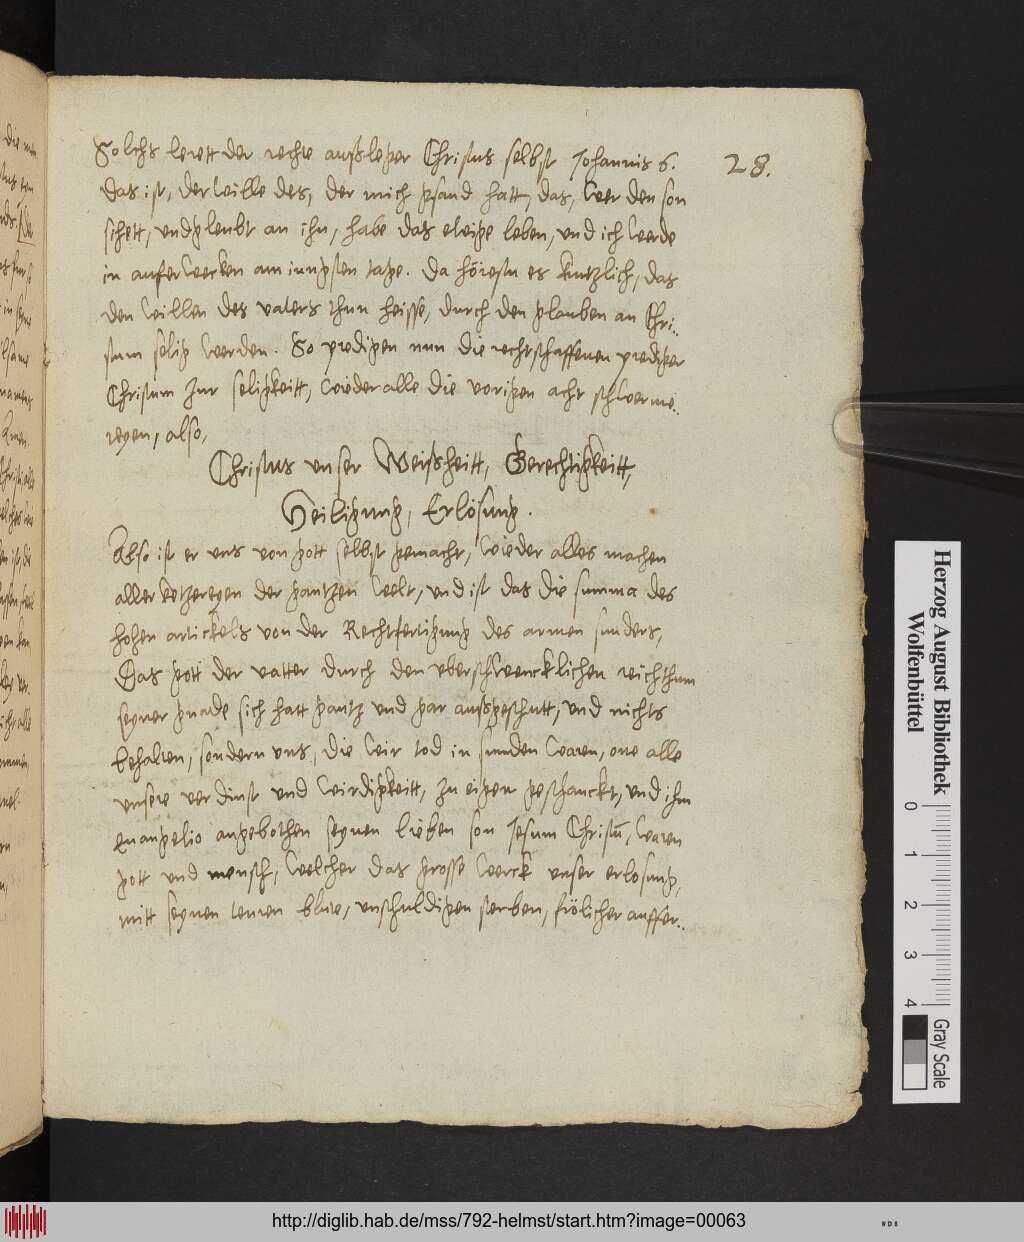 28.
Solchs lerett der rechte außleger Christus selbst Johannis 6.
Das ist, der wille des, der mich gsand hatt, das, wer den son
sihett, und gleubt an ihn, habe das ewige leben, und ich werde
in auferwecken am iungsten tage. Da hörestu es kurtzlich, das
den willen des vaters thun heisse, durch den glauben an Chri..
stum selig werden. So predigen nun die rechtschaffenen prediger
Christum zur seligkeitt, wieder alle die vorigen acht schwerme..
reyen, also,
Christus unser Weißheitt, Gerechtigkeitt,
Heiligung, Erlösung.
Also ist er uns von gott selbst gemacht, wieder alles machen
aller ketzereyen der gantzen welt, und ist das die summa des
hohen artickels von der Rechtfertigung des armen sunders,
Das gott der vatter durch den uberschwencklichen reichthum
seyner gnade sich hatt gantz und gar außgeschutt, und nichts
behalten, sondern uns, die wir tod in sunden waren, one alle
unsere verdinst und wirdigkeitt, zu eigen geschanckt, und ihm
euangelio angebothen seynen lieben son Jesum Christū, waren
gott und mensch, welcher das grosse werck unser erlosung,
mitt seynen teuren blute, unschuldigen sterben, frölicher auffer..
Herzog August Bibliothek
Wolfenbüttel
0 1 2 3 4
Gray Scale
http://diglib.hab.de/mss/792-helmst/start.htm?image=00063